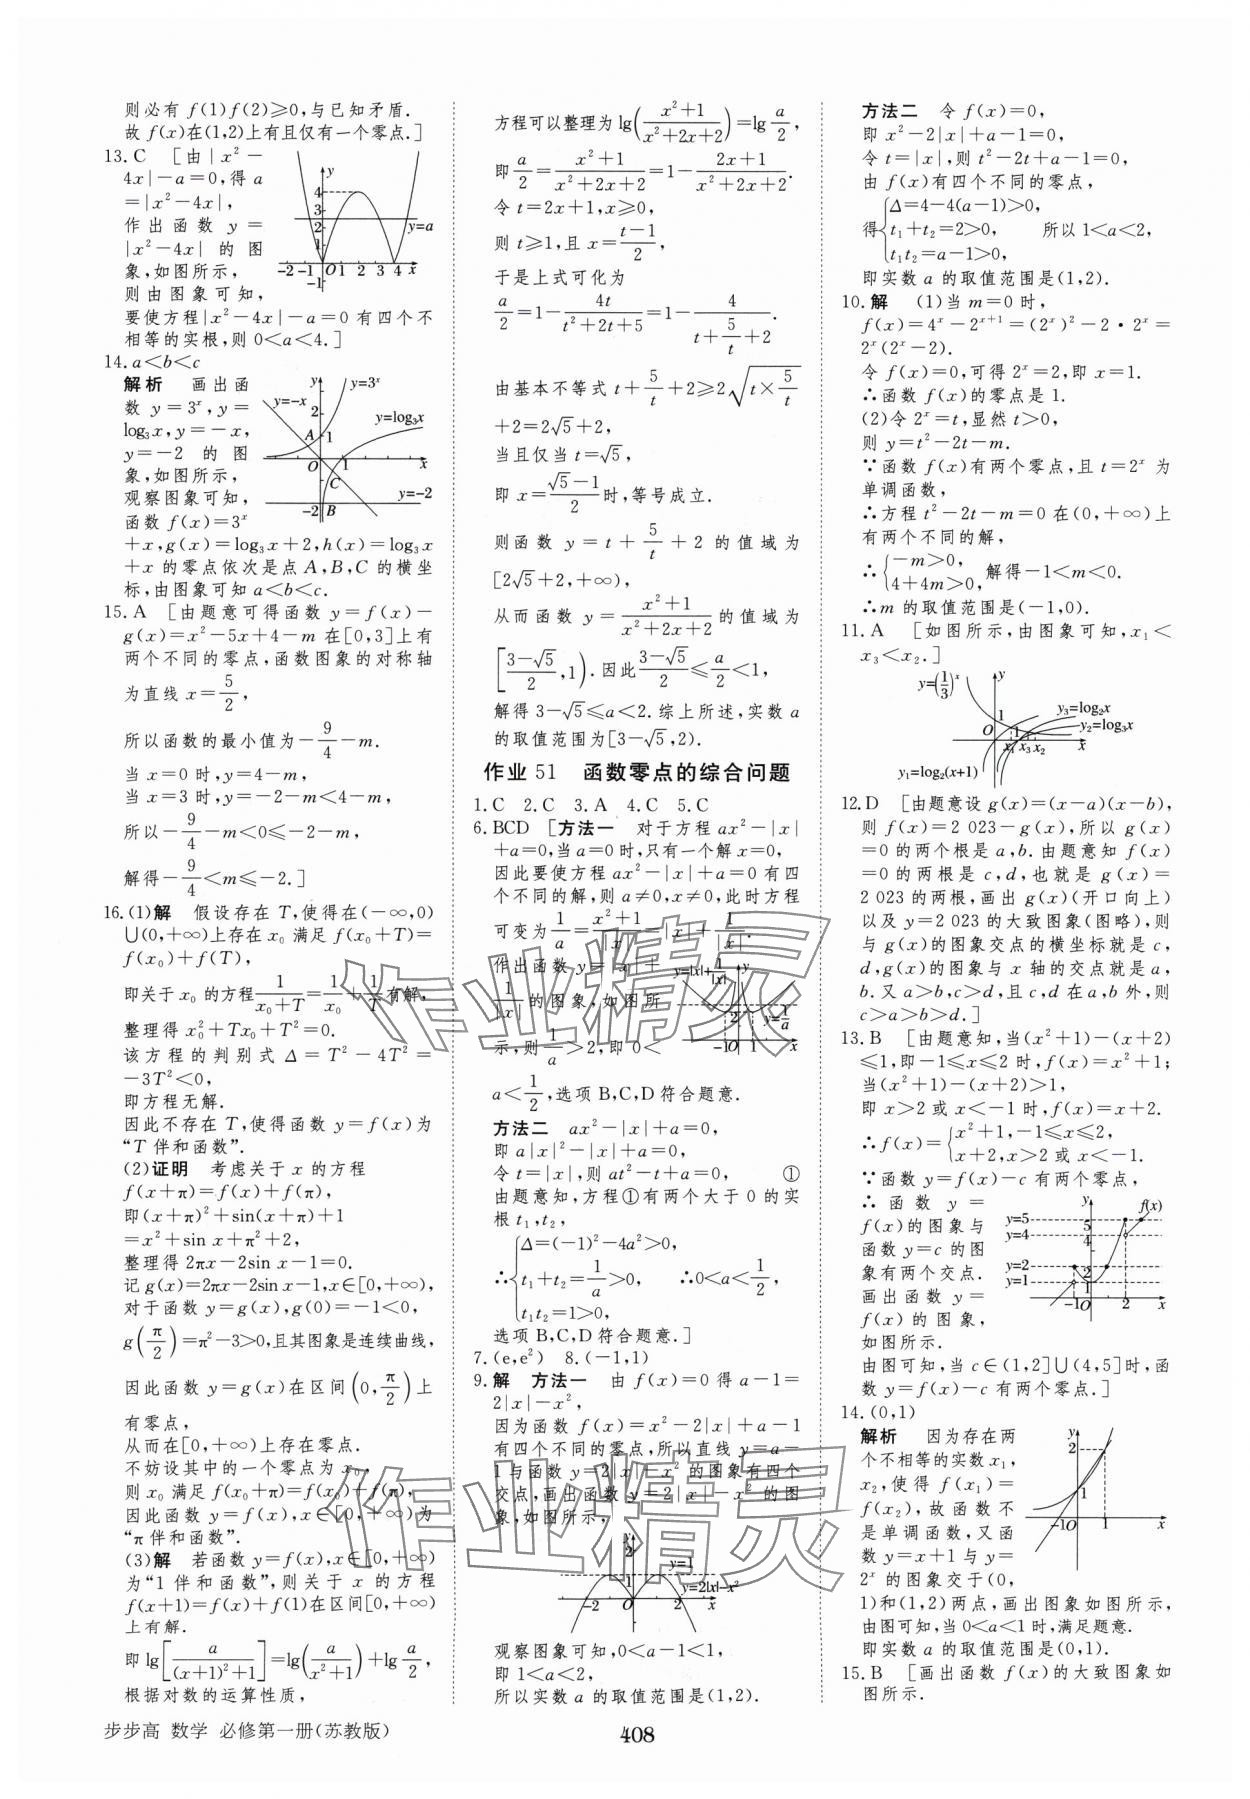 则必有 f(1)f(2)≥0,与已知矛盾.
故 f(x)在(1,2)上有且仅有一个零点.]
13.C [由|x²-
4x|-a=0,得 a
=|x²-4x|,
作出函数 y=
|x²-4x| 的图
象,如图所示,
则由图象可知,
要使方程|x²-4x|-a=0 有四个不
相等的实根,则 0<a<4.]
y
4
3
2
1
y=a
-2 -1 O 1 2 3 4 x
-1
14.a<b<c
解析 画出函
数 y=3ˣ,y=
log₃x,y=-x,
y=-2 的图
象,如图所示,
观察图象可知,
函数 f(x)=3ˣ
+x,g(x)=log₃x+2,h(x)=log₃x
+x 的零点依次是点 A,B,C 的横坐
标,由图象可知 a<b<c.
y=-x
y
y=3ˣ
2
y=log₃x
A 1
O 1 x
C
y=-2
-2 B
15.A [由题意可得函数 y=f(x)-
g(x)=x²-5x+4-m 在[0,3]上有
两个不同的零点,函数图象的对称轴
为直线 x=5/2,
所以函数的最小值为-9/4-m.
当 x=0 时,y=4-m,
当 x=3 时,y=-2-m<4-m,
所以-9/4-m<0≤-2-m,
解得-9/4<m≤-2.]
16.(1)解 假设存在 T,使得在(-∞,0)
∪(0,+∞)上存在 x₀ 满足 f(x₀+T)=
f(x₀)+f(T),
即关于 x₀ 的方程1/(x₀+T)=1/x₀+1/T有解,
整理得 x₀²+Tx₀+T²=0.
该方程的判别式 Δ=T²-4T²=
-3T²<0,
即方程无解.
因此不存在 T,使得函数 y=f(x)为
“T 伴和函数”.
(2)证明 考虑关于 x 的方程
f(x+π)=f(x)+f(π),
即(x+π)²+sin(x+π)+1
=x²+sin x+π²+2,
整理得 2πx-2sin x-1=0.
记 g(x)=2πx-2sin x-1,x∈[0,+∞),
对于函数 y=g(x),g(0)=-1<0,
g(π/2)=π²-3>0,且其图象是连续曲线,
因此函数 y=g(x)在区间(0,π/2)上
有零点,
从而在[0,+∞)上存在零点.
不妨设其中的一个零点为 x₀,
则 x₀ 满足 f(x₀+π)=f(x₀)+f(π),
因此函数 y=f(x),x∈[0,+∞)为
“π 伴和函数”.
(3)解 若函数 y=f(x),x∈[0,+∞)
为“1 伴和函数”,则关于 x 的方程
f(x+1)=f(x)+f(1)在区间[0,+∞)
上有解.
即 lg[a/((x+1)²+1)]=lg(a/(x²+1))+lg a/2,
根据对数的运算性质,
方程可以整理为 lg((x²+1)/(x²+2x+2))=lg a/2,
即 a/2=(x²+1)/(x²+2x+2)=1-(2x+1)/(x²+2x+2).
令 t=2x+1,x≥0,
则 t≥1,且 x=(t-1)/2,
于是上式可化为
a/2=1-4t/(t²+2t+5)=1-4/(t+5/t+2).
由基本不等式 t+5/t+2≥2√(t×5/t)
+2=2√5+2,
当且仅当 t=√5,
即 x=(√5-1)/2时,等号成立.
则函数 y=t+5/t+2 的值域为
[2√5+2,+∞),
从而函数 y=(x²+1)/(x²+2x+2)的值域为
[(3-√5)/2,1).因此(3-√5)/2≤a/2<1,
解得 3-√5≤a<2.综上所述,实数 a
的取值范围为[3-√5,2).
作业 51 函数零点的综合问题
1.C 2.C 3.A 4.C 5.C
6.BCD [方法一 对于方程 ax²-|x|
+a=0,当 a=0 时,只有一个解 x=0,
因此要使方程 ax²-|x|+a=0 有四
个不同的解,则 a≠0,x≠0,此时方程
可变为1/a=(x²+1)/|x|=|x|+1/|x|.
作出函数 y=|x|+
1/|x|的图象,如图所
示,则1/a>2,即 0<
a<1/2,选项 B,C,D 符合题意.
y=|x|+1/|x|
y
2
y=1/a
-1 O 1 x
方法二 ax²-|x|+a=0,
即 a|x|²-|x|+a=0,
令 t=|x|,则 at²-t+a=0, ①
由题意知,方程①有两个大于 0 的实
根 t₁,t₂,
Δ=(-1)²-4a²>0,
∴{t₁+t₂=1/a>0, ∴0<a<1/2,
t₁t₂=1>0,
选项 B,C,D 符合题意.]
7.(e,e²) 8.(-1,1)
9.解 方法一 由 f(x)=0 得 a-1=
2|x|-x²,
因为函数 f(x)=x²-2|x|+a-1
有四个不同的零点,所以直线 y=a-
1 与函数 y=2|x|-x² 的图象有四个
交点,画出函数 y=2|x|-x² 的图
象,如图所示,
y
2
1
y=1
y=2|x|-x²
-2 O 2 x
观察图象可知,0<a-1<1,
即 1<a<2,
所以实数 a 的取值范围是(1,2).
方法二 令 f(x)=0,
即 x²-2|x|+a-1=0,
令 t=|x|,则 t²-2t+a-1=0,
由 f(x)有四个不同的零点,
Δ=4-4(a-1)>0,
得{t₁+t₂=2>0, 所以 1<a<2,
t₁t₂=a-1>0,
即实数 a 的取值范围是(1,2).
10.解 (1)当 m=0 时,
f(x)=4ˣ-2ˣ⁺¹=(2ˣ)²-2·2ˣ=
2ˣ(2ˣ-2).
令 f(x)=0,可得 2ˣ=2,即 x=1.
∴函数 f(x)的零点是 1.
(2)令 2ˣ=t,显然 t>0,
则 y=t²-2t-m.
∵函数 f(x)有两个零点,且 t=2ˣ 为
单调函数,
∴方程 t²-2t-m=0 在(0,+∞)上
有两个不同的解,
∴{-m>0,
4+4m>0, 解得-1<m<0.
∴m 的取值范围是(-1,0).
11.A [如图所示,由图象可知,x₁<
x₃<x₂.]
y=(1/3)ˣ
y
1
y₃=log₂x
y₂=log₃x
O x₁ 1 x₃ x₂ x
y₁=log₂(x+1)
12.D [由题意设 g(x)=(x-a)(x-b),
则 f(x)=2 023-g(x),所以 g(x)
=0 的两个根是 a,b.由题意知 f(x)
=0 的两根是 c,d,也就是 g(x)=
2 023 的两根,画出 g(x)(开口向上)
以及 y=2 023 的大致图象(图略),则
与 g(x)的图象交点的横坐标就是 c,
d,g(x)的图象与 x 轴的交点就是 a,
b.又 a>b,c>d,且 c,d 在 a,b 外,则
c>a>b>d.]
13.B [由题意知,当(x²+1)-(x+2)
≤1,即-1≤x≤2 时,f(x)=x²+1;
当(x²+1)-(x+2)>1,
即 x>2 或 x<-1 时,f(x)=x+2.
∴f(x)={x²+1,-1≤x≤2,
x+2,x>2 或 x<-1.
∵函数 y=f(x)-c 有两个零点,
∴函数 y=
f(x)的图象与
函数 y=c 的图
象有两个交点.
画出函数 y=
f(x) 的图象,
如图所示.
由图可知,当 c∈(1,2]∪(4,5]时,函
数 y=f(x)-c 有两个零点.]
y
f(x)
y=5 5
y=4 4
y=2 2
y=1 1
-1 O 2 x
14.(0,1)
解析 因为存在两
个不相等的实数 x₁,
x₂,使得 f(x₁)=
f(x₂),故函数不
是单调函数,又函
数 y=x+1 与 y=
2ˣ 的图象交于(0,
1)和(1,2)两点,画出图象如图所示,
由图可知,当 0<a<1 时,满足题意.
即实数 a 的取值范围是(0,1).
y
2
1
-1 O 1 x
15.B [画出函数 f(x)的大致图象如
图所示.
作业精灵
作业精灵
步步高 数学 必修第一册(苏教版)
408